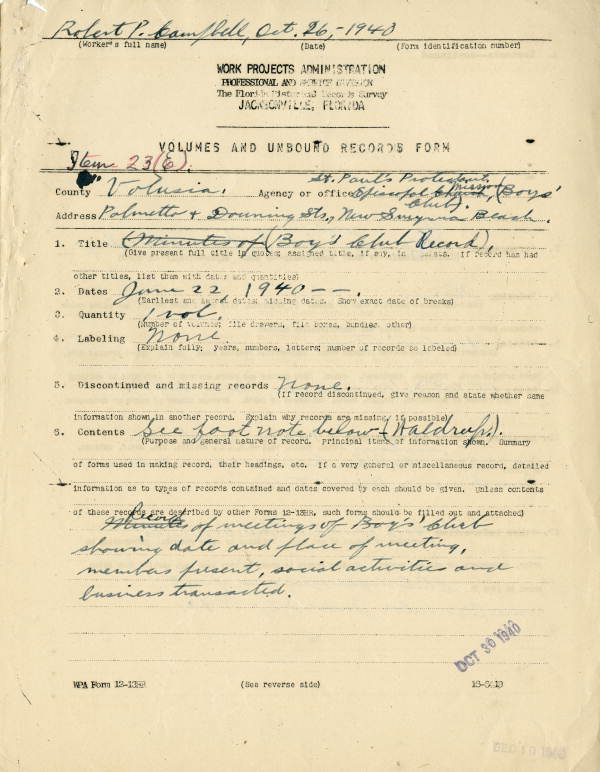 Robert P. Campbell, Oct. 26,-1940
(Worker's full name) (Date) (Form identification number)
WORK PROJECTS ADMINISTRATION
PROFESSIONAL AND SERVICE DIVISION
The Florida Historical Records Survey
JACKSONVILLE, FLORIDA
VOLUMES AND UNBOUND RECORDS FORM
Item 23(E).
St. Paul's Protestant
County Volusia. Agency or office Episcopal Church Mission, (Boys'
Club).
Address Palmetto & Downing Sts., New Smyrna Beach.
1. Title (Minutes of (Boy's Club Record),
(Give present full title in quotes; assigned title, if any, in parents. if record has had
other titles, list them with dates and quantities)
2. Dates June 22 1940 --.
(Earliest and latest dates; missing dates. Show exact date of breaks)
3. Quantity 1 vol.
(Number of volumes; file drawers, file boxes, bundles, other)
4. Labeling None.
(Explain fully; years, numbers, letters; number of records so labeled)
5. Discontinued and missing records None.
(If record discontinued, give reason and state whether same
information shown in another record. Explain why records are missing, if possible)
6. Contents See foot note below - (Waldrup).
(Purpose and general nature of record. Principal items of information shown. Summary
of forms used in making record, their headings, etc. If a very general or miscellaneous record, detailed
information as to types of records contained and dates covered by each should be given. Unless contents
of these records are described by other Forms 12-13HR, such forms should be filled out and attached)
Record
Minutes of meetings of Boy's Club
showing date and place of meeting,
members present, social activities and
business transacted.
OCT 30 1940
WPA Form 12-13HR (See reverse side)
DEC 19 1940